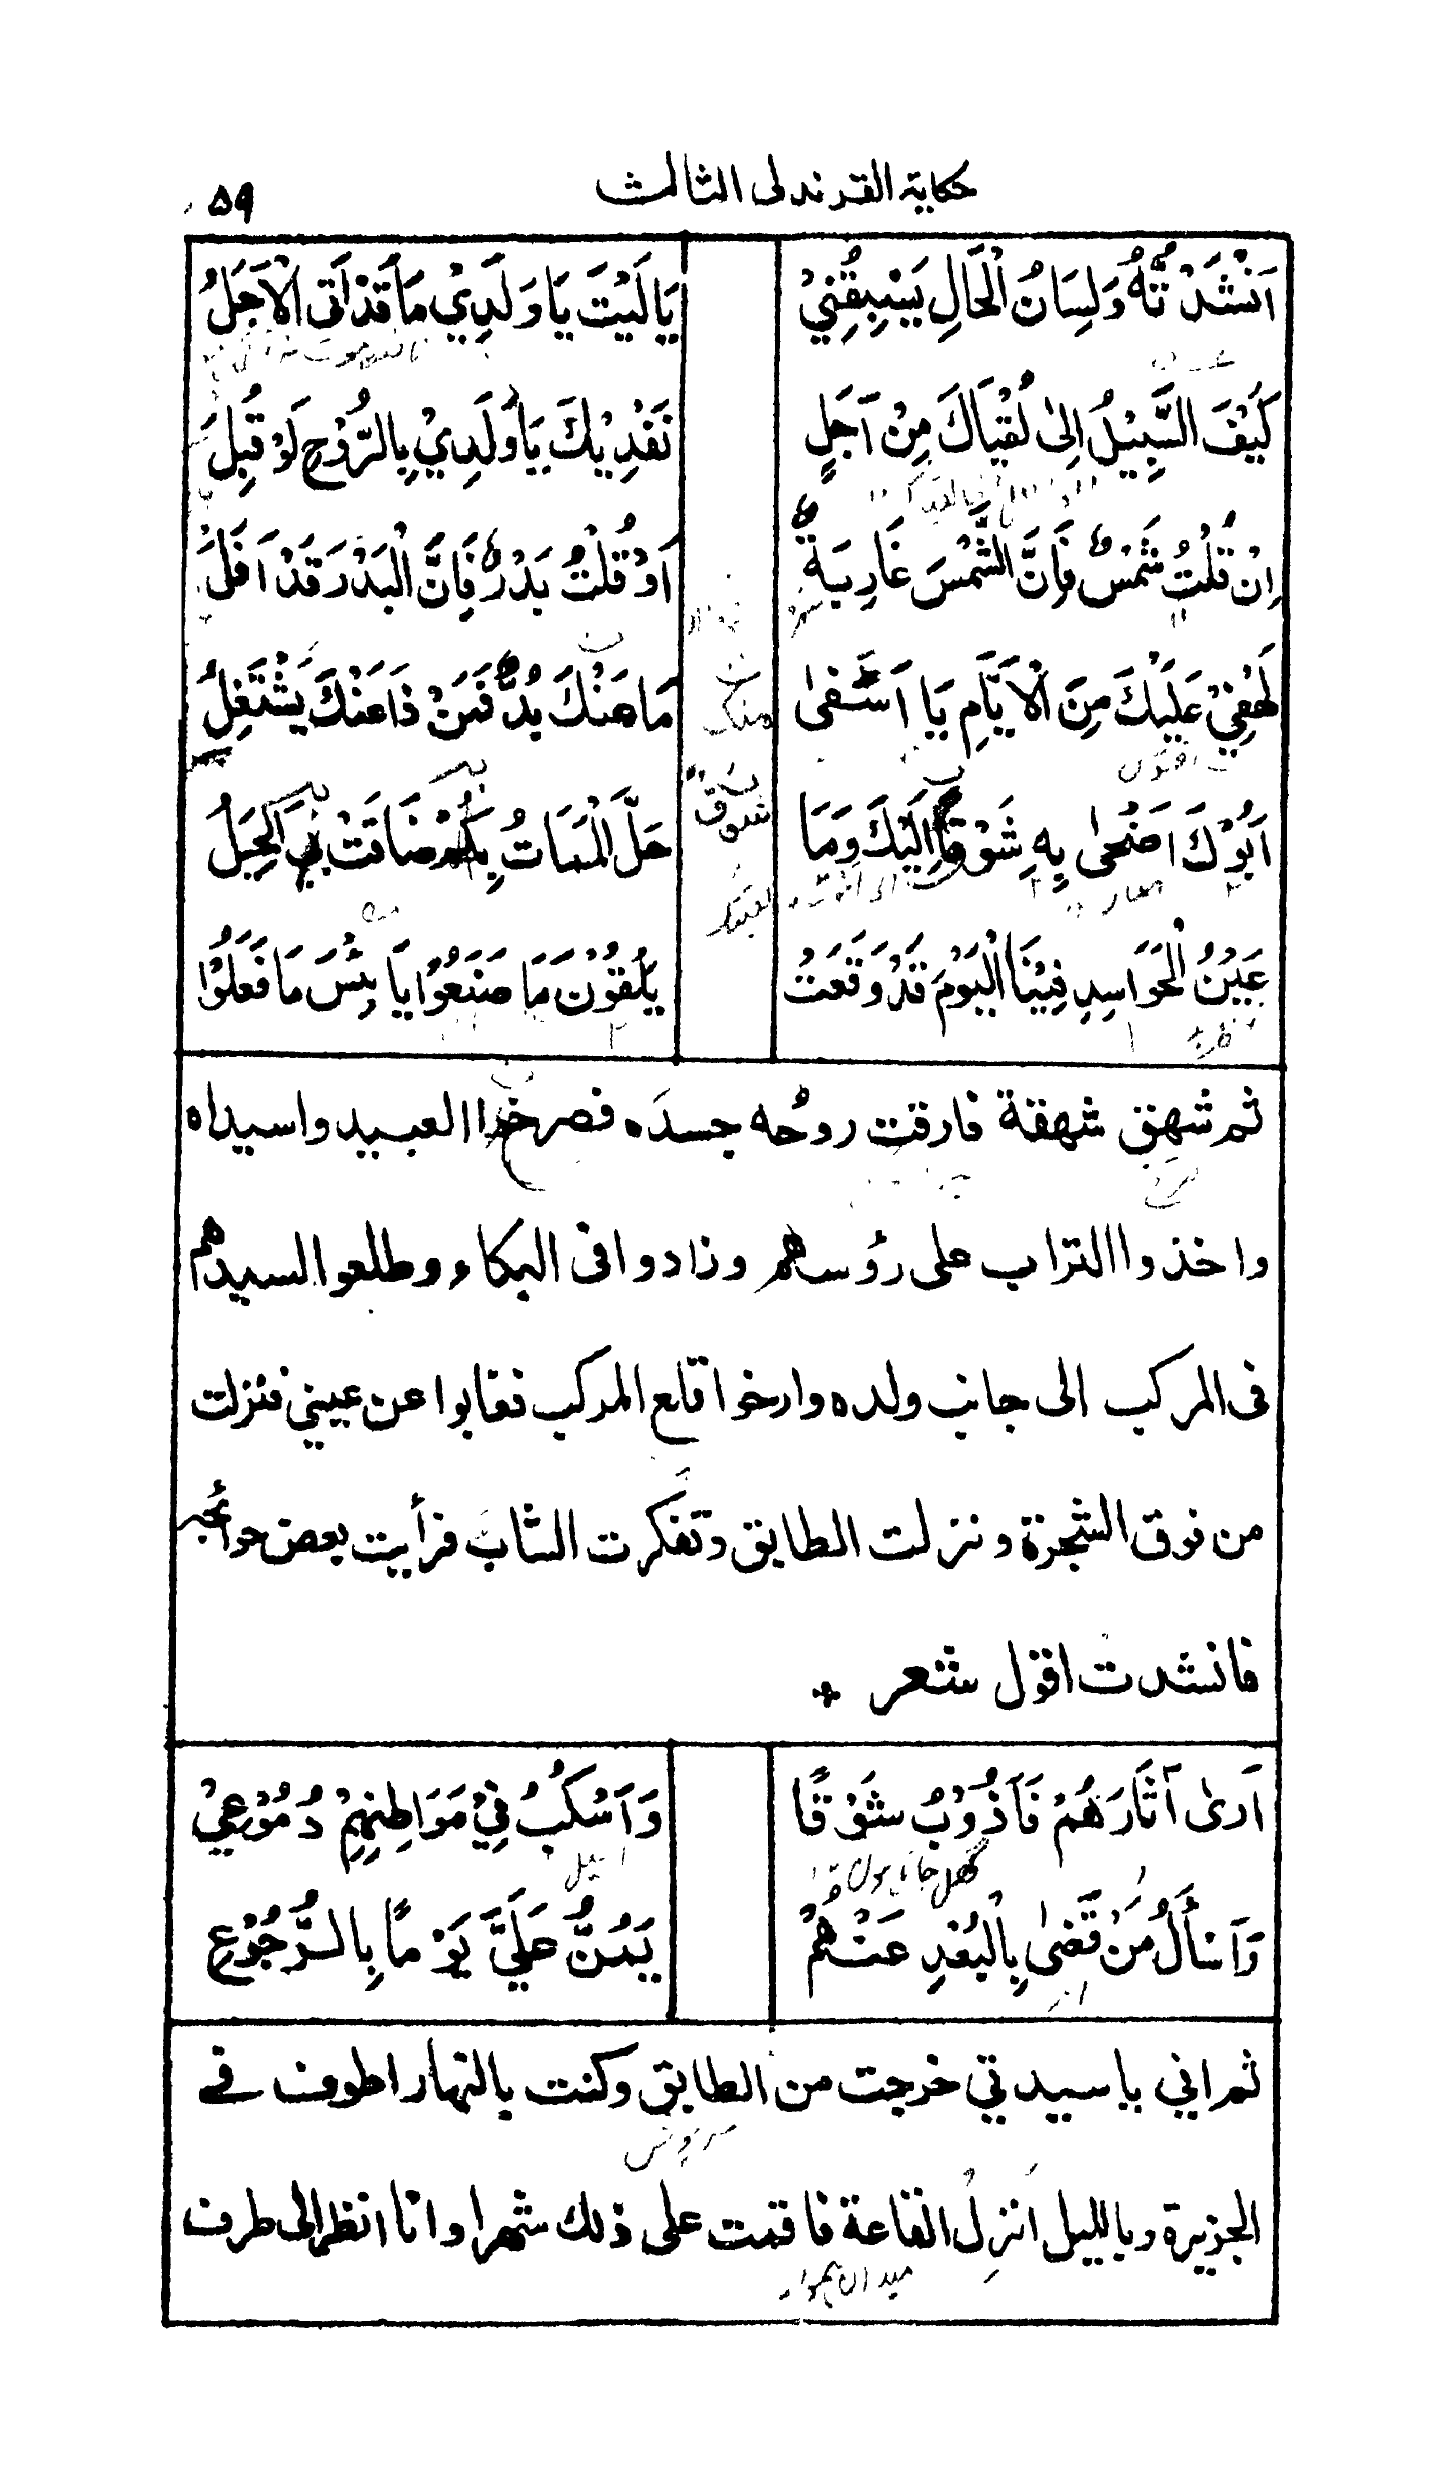 حكاية القرندلى الثالث ٥٩
اَنْشَدْتُهُ وَلِسَانُ الْحَالِ يَسْبِقُنِيْ يَالَيْتَ يَا وَلَدِيْ مَا قَدْ اَتَى الْاَجَلُ
كَيْفَ السَّبِيْلُ اِلىٰ لُقْيَاكَ مِنْ اَجَلٍ نَفْدِيْكَ يَا وَلَدِيْ بِالرُّوْحِ لَوْ قُبِلَ
اِنْ قُلْتُ شَمْسٌ فَاِنَّ الشَّمْسَ غَارِبَةٌ اَوْ قُلْتُ بَدْرٌ فَاِنَّ الْبَدْرَ قَدْ اَفَلَ
لَهْفِيْ عَلَيْكَ مِنَ الْاَيَّامِ يَا اَسَفىٰ مَا عَنْكَ بُدٌّ فَمَنْ ذَا عَنْكَ يَشْتَغِلُ
اَبُوْكَ اَضْحىٰ بِهِ شَوْقًا اِلَيْكَ وَمَا حَلَّ الْمَمَاتُ بِكُمْ ضَاقَتْ بِيَ الْحِيَلُ
عَيْنُ الْحَوَاسِدِ فِيْنَا الْيَوْمَ قَدْ وَقَعَتْ يَلْقَوْنَ مَا صَنَعُوْا يَا بِئْسَ مَا فَعَلُوْا
ثم شهق شهقة فارقت روحُه جسدَه فصرخوا العبيد واسيداه
واخذوا التراب على رؤسهم وزادوا فى البكاء وطلعوا السيدهم
فى المركب الى جانب ولده وارخوا قلع المركب فغابوا عن عيني فنزلت
من فوق الشجرة ونزلت الطابق وتفكرت الشاب فرأيت بعض حوائجه
فانشدت اقول شعر +
اَرىٰ آثَارَهُمْ فَاَذُوْبُ شَوْقًا وَاَسْكُبُ فِيْ مَوَاطِنِهِمْ دُمُوْعِيْ
وَاَسْأَلُ مَنْ قَضىٰ بِالْبُعْدِ عَنْهُمْ يَمُنُّ عَلَيَّ يَوْمًا بِالرُّجُوْعِ
ثم اني يا سيدتي خرجت من الطابق وكنت بالنهار اطوف في
الجزيرة وبالليل انزل القاعة فاقمت على ذلك شهرا وانا انظر الى طرف